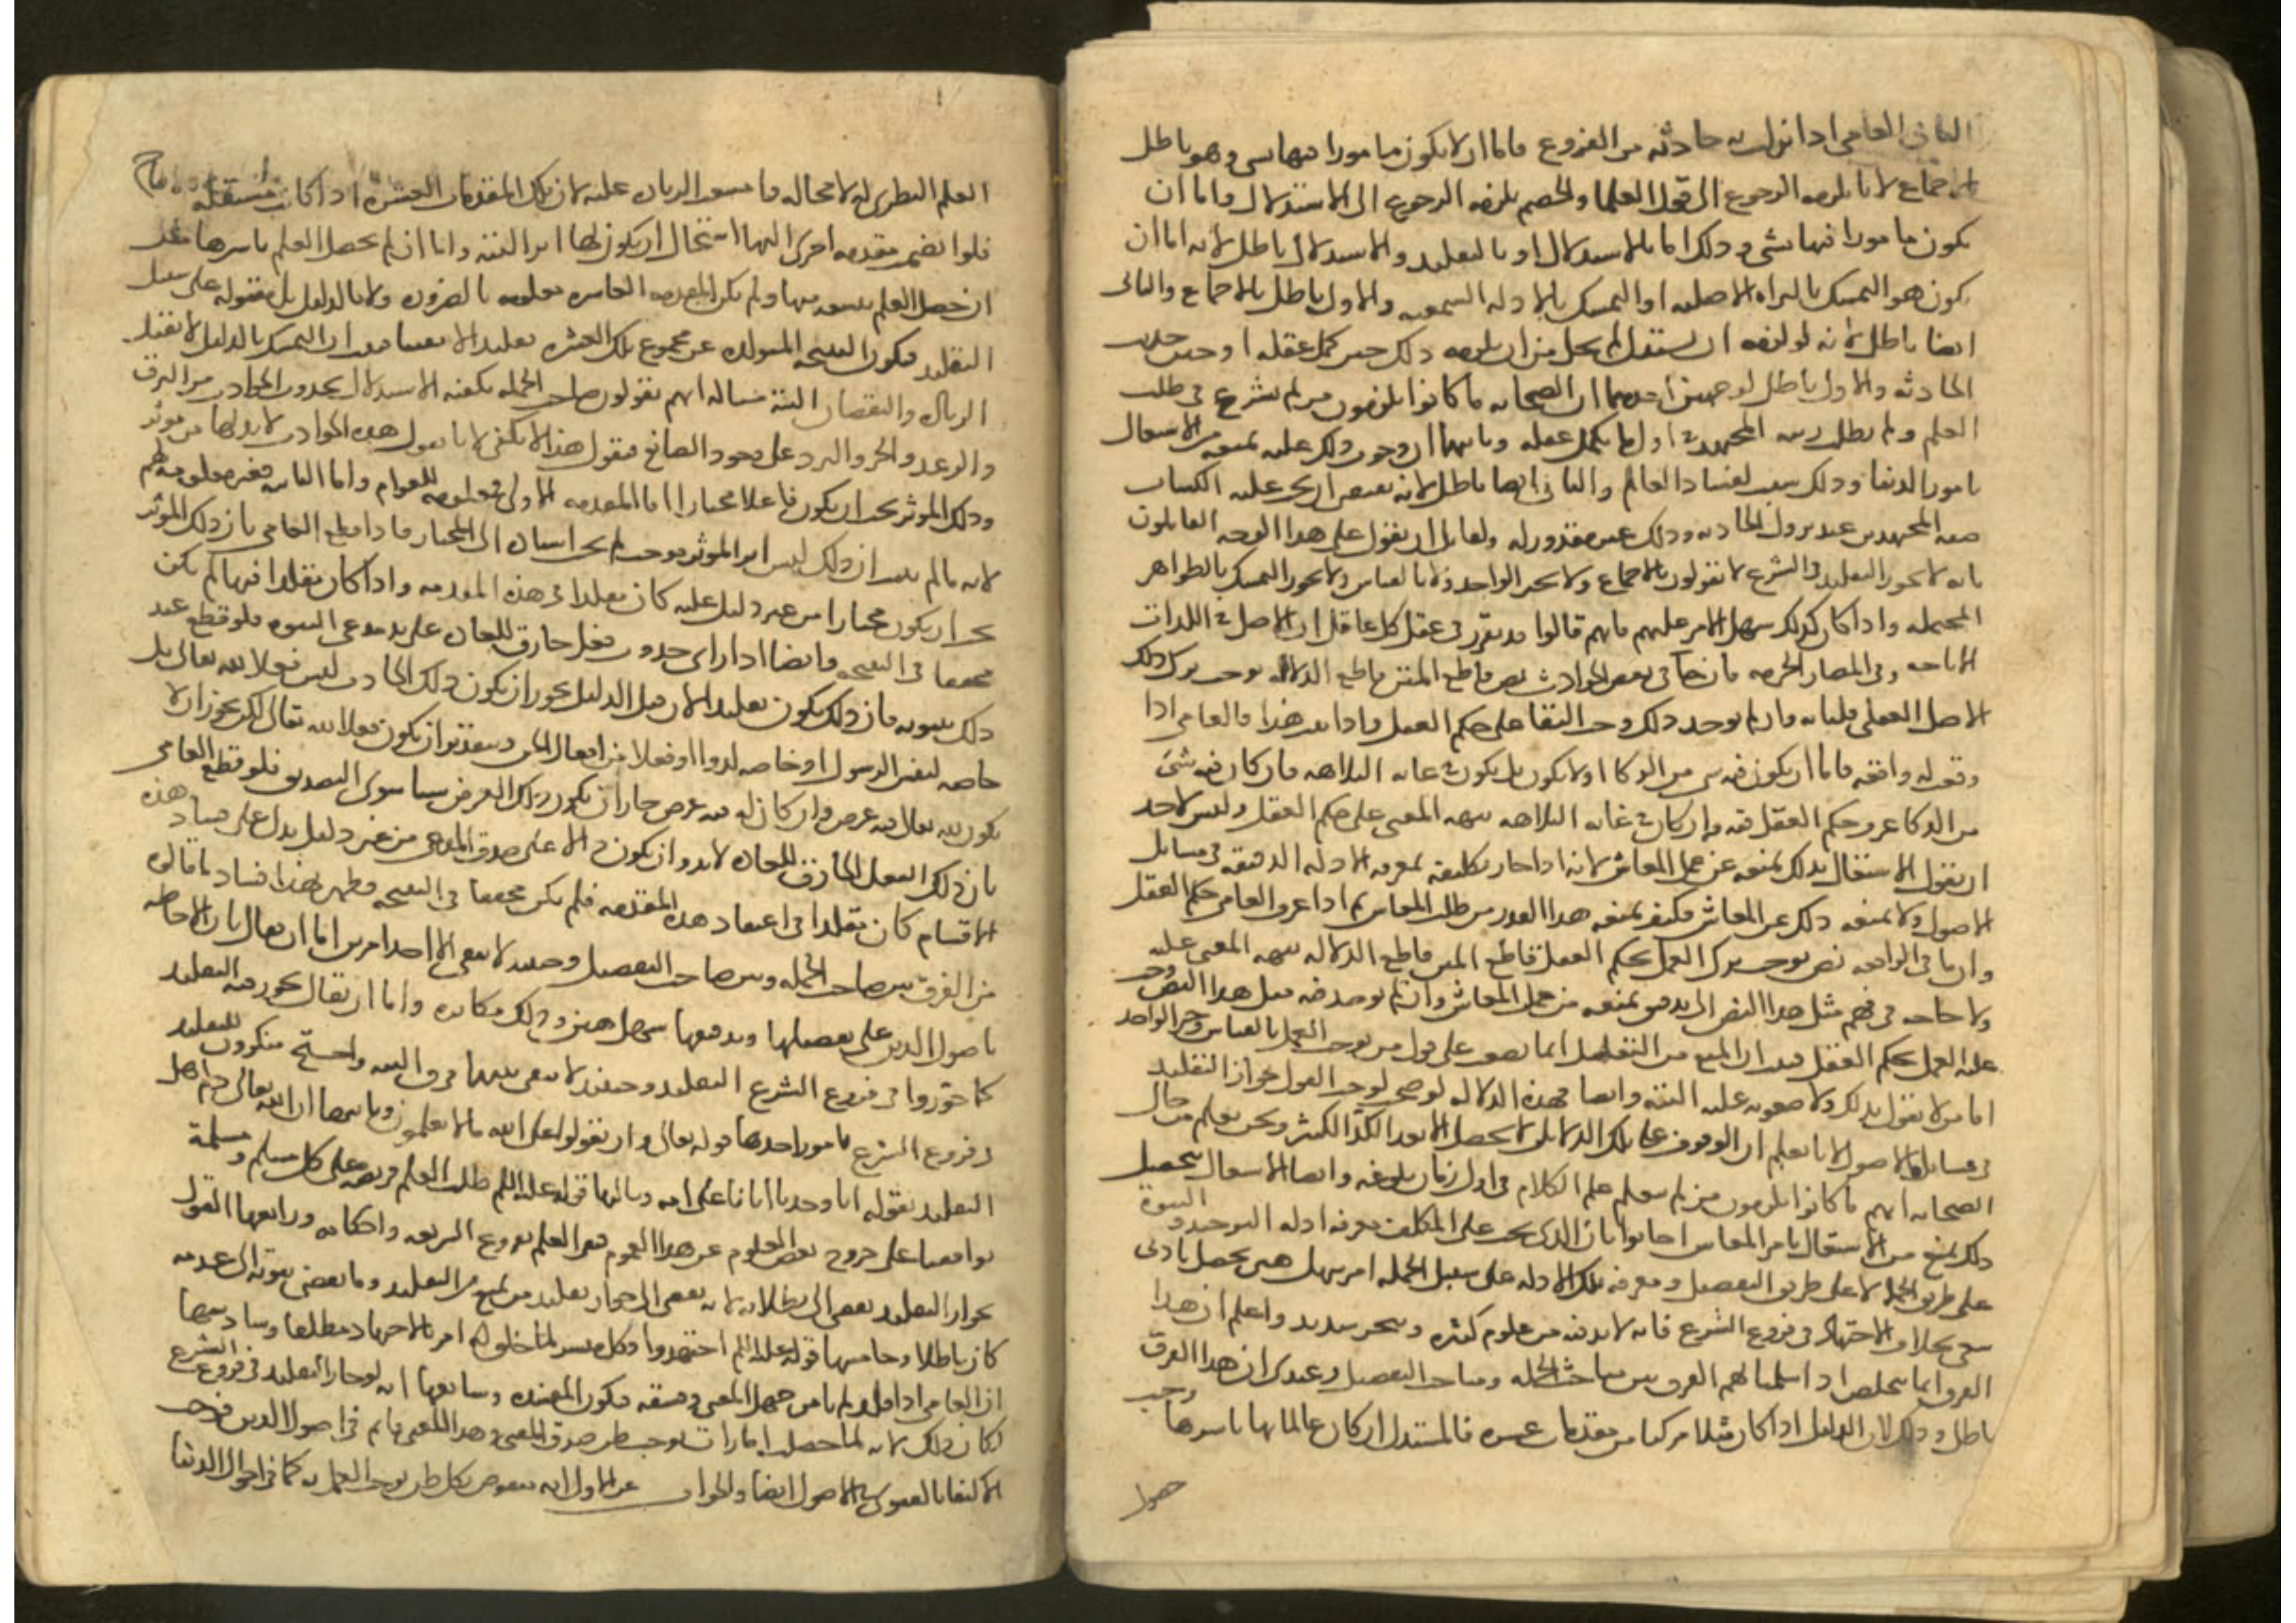 الثاني العامي اذا نزلت به حادثة من الفروع فاما ان لا يكون مامورا فيها بشي وهو باطل
بالاجماع لانا نلزمه الرجوع الى قول العلما والخصم يلزمه الرجوع الى الاستدلال واما ان
يكون مامورا فيها بشي وذلك اما بالاستدلال او بالتقليد والاستدلال باطل لانه اما ان
يكون هو التمسك بالبراه الاصليه او التمسك بالادله السمعيه والاول باطل بالاجماع والثاني
ايضا باطل لانه لو لزمه ان يستدل لم يخل من ان يلزمه ذلك حين كمل عقله او حين حدثت
الحادثه والاول باطل لوجهين احدهما ان الصحابه ما كانوا يلومون من لم يشرع في طلب
العلم ولم يطلب رتبه المجتهد في اول ما يكمل عقله وثانيهما ان وجوب ذلك عليه يمنعه من الاشتغال
بامور الدنيا وذلك سبب لفساد العالم والثاني ايضا باطل لانه يقتضي ان يجب عليه اكتساب
صفه المجتهدين عند نزول الحادثه وذلك غير مقدور له ولقائل ان يقول على هذا الوجه القائلون
بانه لا يجوز التقليد في الشرع لا يقولون بالاجماع ولا بخبر الواحد ولا بالقياس ولا يجوز التمسك بالظواهر
المحتمله واذا كان كذلك سهل الامر عليهم فانهم قالوا قد تقرر في عقل كل عاقل ان الاصل في اللذات
الاباحه وفي المضار الحرمه فان جا في بعض الحوادث نص قاطع المتن قاطع الدلاله يوجب ترك ذلك
الاصل العقلي قلنا به وان لم يوجد ذلك وجب البقا على حكم العقل واذا ثبت هذا فالعامي اذا
وقعت له واقعه فاما ان يكون فيه شي من الذكا او لا يكون بل يكون في غايه البلاهه فان كان فيه شي
من الذكا عرف حكم العقل فيه وان كان في غايه البلاهه نبهه المفتي على حكم العقل وليس لاحد
ان يقول الاشتغال بذلك يمنعه عن عمل المعاش لانه اذا جاز تكليفه بمعرفه الادله الدقيقه في مسائل
الاصول ولا يمنعه ذلك عن المعاش فكيف يمنعه هذا القدر من طلب المعاش ثم اذا عرف العامي حكم العقل
وان جا في الواقعه نص يوجب ترك العمل بحكم العقل قاطع المتن قاطع الدلاله نبهه المفتي عليه
ولا حاجه في فهم مثل هذا النص الى تدقيق يمنعه من عمل المعاش وان لم يوجد فيه مثل هذا النص وجب
عليه العمل بحكم العقل فثبت ان المنع من التقليد انما يصعب على قول من يوجب العمل بالقياس وخبر الواحد
اما من لا يقول بذلك ولا صعوبه عليه البته وايضا فهذه الدلاله لو صحت لوجب القول بجواز التقليد
في مسائل الاصول لانا نعلم ان الوقوف على تلك الدلائل لا يحصل الا بعد الكد الكثير ونحن نعلم من حال
الصحابه انهم ما كانوا يلومون من لم يتعلم علم الكلام في اول زمان بلوغه وايضا الاشتغال بتحصيل
ذلك يمنع من الاشتغال بامر المعاش اجابوا بان الذي يجب على المكلف معرفه ادله التوحيد والنبوة
على طريق الجمله لا على طريق التفصيل ومعرفه تلك الادله على سبيل الجمله امر سهل هين يحصل بادنى
سعي بخلاف الاجتهاد في فروع الشرع فانه لا بد فيه من علوم كثيره وتبحر شديد واعلم ان هذا
الفرق انما يتخلص اذا سلمنا لهم الفرق بين صاحب الجمله وصاحب التفصيل وعندي ان هذا الفرق
باطل وذلك لان الدليل اذا كان مثلا مركبا من مقدمات عشره فالمستدل ان كان عالما بها باسرها وجب
حصول
العلم النظري له لا محاله وامتنعت الزيادة عليه لان تلك المقدمات العشره اذا كانت مستقله بالانتاج
فلو انضم مقدمه اخرى اليها استحال ان يكون لها اثر البته واما ان لم يحصل العلم باسرها مثل
ان حصل العلم بتسعه منها ولم تكن المقدمه العاشره معلومه بالضروره ولا بالدليل بل مقبوله على سبيل
التقليد فتكون النتيجه المتولده عن مجموع تلك العشره تقليدا لا يقينا فثبت ان التمسك بالدليل لا يقبل
الزياده والنقصان البته مثاله انهم يقولون صاحب الجمله يكفيه الاستدلال بحدوث الحوادث من البرق
والرعد والحر والبرد على وجود الصانع فنقول هذا لا يكفي لانا نقول هذه الحوادث لا بد لها من موثر
وذلك الموثر يجب ان يكون فاعلا مختارا اما المقدمه الاولى معلومه للعوام واما الثانيه فغير معلومه لهم
لانه ما لم يثبت ان ذلك ليس اثر الموثر موجب لم يجب اسناده الى المختار فاذا قطع العامي بان ذلك الموثر
يجب ان يكون مختارا من غير دليل عليه كان مقلدا في هذه المقدمه واذا كان مقلدا فيها لم يكن
محققا في النتيجه وايضا اذا راى حدوث فعل خارق للعاده على يد مدعي النبوه فلو قطع عند
ذلك بنبوته فان ذلك يكون تقليدا لان قبل الدليل يجوز ان يكون ذلك الحادث ليس فعلا لله تعالى بل
خاصه لنفس الرسول او خاصه لدوا او فعلا من افعال الجن وبتقدير ان يكون فعلا لله تعالى لكن يجوز ان لا
يكون لله تعالى فيه غرض وان كان له فيه غرض جاز ان يكون ذلك الغرض شيئا سوى التصديق فلو قطع العامي
بان ذلك الفعل الخارق للعاده لا بد وان يكون دالا على صدق المدعي من غير دليل يدل على فساد هذه
الاقسام كان مقلدا في اعتقاد هذه المقدمه فلم يكن محققا في النتيجه فظهر بهذا فساد ما قالوه
من الفرق بين صاحب الجمله وبين صاحب التفصيل وحينئذ لا يبقى الا احد امرين اما ان يقال بان الاحاطه
باصول الدين على تفصيلها وتدقيقها سهل هين وذلك مكابره واما ان يقال يجوز فيه التقليد
كما جوزوا في فروع الشرع التقليد وحينئذ لا يبقى بينهما فرق البته واحتج منكرون للتقليد
في فروع الشرع بامور احدها قوله تعالى وان تقولوا على الله ما لا تعلمون وثانيها ان الله تعالى ذم اهل
التقليد بقوله انا وجدنا اباءنا على امه وثالثها قوله عليه السلم طلب العلم فريضه على كل مسلم ومسلمة
توافقنا على خروج بعض العلوم عن هذا العموم فبقي العلم بفروع الشريعه واحكامه ورابعها القول
بجواز التقليد يفضي الى بطلانه لانه يفضي الى جواز تقليد من يمنع من التقليد وما يفضي ثبوته الى عدمه
كان باطلا وخامسها قوله عليه السلم اجتهدوا فكل ميسر لما خلق له امر بالاجتهاد مطلقا وسادسها
ان العامي اذا قلد لم يامن جهل المفتي وفسقه فيكون المفسده وسابعها انه لو جاز التقليد في فروع الشرع
لكان ذلك لانه لما حصلت امارات توجب ظن صدق المفتي وهذا المعنى قايم في اصول الدين فوجب
الاكتفا بالفتوى في الاصول ايضا والجواب عن الاول انه منقوض بكل ظن يوجب العمل به كما في احوال الدنيا